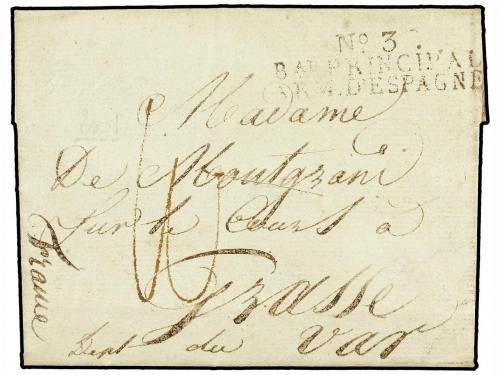 No 3
BAU PRINCIPAL
ARM. D'ESPAGNE
Madame
De Montgrani
Sur le Cours a
Grasse
Dept du Var
France